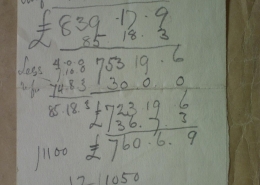 £ 839 . 17 . 9
85 18 . 3
Less 4 . 0 . 0 753 19 . 6
74 . 8 . 3 30 . 0 . 0
85 . 18 . 3
£ 723 . 19 . 6
36 . 7 . 3
11100 £ 760 . 6 . 9